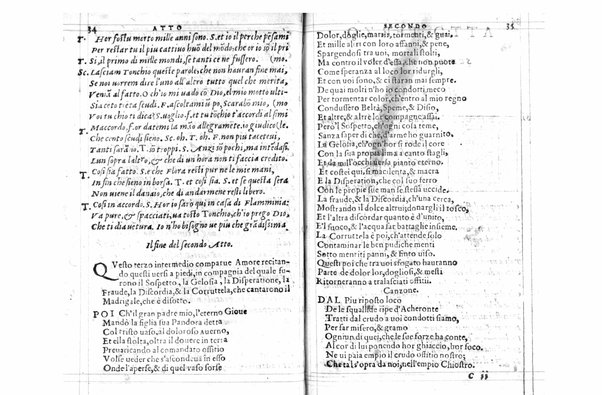 34 ATTO
T. Hor fostu morto mille anni sono. S. et io il perche pēsami
Per restar tu il piu cattiuo huō del mōdo, che et io iō il pri
T. Si, il primo di mille mondi, se tanti ce ne fussero. (mo.
Sc. Lasciam Tonchio queste parole, che non hauran fine mai,
Se noi vorrem dire l'uno all'altro tutto quel che merita,
Venīā al fatto. O ch'io mi uadō cō Dio, el mio motto ulti-
Sia ceto treta scudi. F. ascoltami ū pò, Scarabò mio, (mo
Voi tu ch'io ti dica? S. uoglio. f. et tu tochio t'accordi al simi
T. Maccordo. F. or datemi la mão allegramēte. io giudico (le.
Che cento scudi sieno. Sc. oh. T. oh. F. non piu tacete,
Tanti sarāno. T. ō troppi. S. Anzi pochi, ma intēdasi.
Lun sopra laltro, & che di un hora non ti faccia credito.
T. Cosi sia fatto. S. e che Flora resti pur ne le mie mani,
In fin che sieno in borsa. T. et cosi sia. S. et se questa sera
Non uiene il danaio, che di andarmene resti libero.
T. Cosi in accordo. S. Hor io sarò quì in casa di Flamminia:
Va pure, & spacciati, ua tosto Tonchio, ch'io prego Dio,
Che ti dia uetura. T. Io n'ho bisogno ue piu che grādissima.
Il fine del secondo Atto.
QVesto terzo intermedio compartue Amore recitan-
do questi versi a piedi, in compagnia del quale fu-
rono il Sospetto, la Gelosia, la Disperatione, la
Fraude, la Discordia, & la Corruttela, che cantarono il
Madrigale, che è disotto.
POI Ch'il gran padre mio, l'eterno Gioue
Mandò la figlia sua Pandora detta
Col tristo vaso, al doloroso Auerno,
Et ella stolta, oltra il douere in terra
Preuaricando al comandato offitio
Volse veder che s'ascondea suso in esso
Onde l'aperse, & di quel vaso forse
SECONDO. 35
Dolor, doglie, martir, tormenti, & guai,
Et mille altri con loro affanni, & pene,
Spargendosi tra uoi, mortali stolti.
Ma contro il voler d'essa, che non fu
Come speranza al loco lor ridurgli,
Et con uoi sono, & ci staran mai sempre.
De quai molti n'ho condotti, meco
Per tormentar color, ch'entro al mio regno
Condussero Beltà, Speme, & Disio,
Et altre, & altre lor compagne assai.
Però'l Sospetto, ch'ogni cosa teme,
Sanza sperar giamai, d'arme ho guarnito.
La Gelosia, ch'ogni hor si rode il core
Con la sua propria man a canto stagli,
Et da mill'occhi uerlo pianto eterno.
Et costei qui, si macilenta, & macra
E la Disperation, che col suo ferro
Con le proprie sue man se stessa uccide.
La fraude, & la Discordia, ch'una cerca,
Mostrando il dolce altrui donargli il tosco,
Et l'altra discordar quanto è d'unito,
E'l fuoco, & l'acqua far battaglie insieme.
La Corruttela è poi, ch'attende solo
Contaminar le ben pudiche menti
Sotto mentiti panni, & Enfio uiso.
Questi poi che tra uoi sfogato hauranno
Parte di dolor, dogliosi, & mesti
Ritorneranno a tralasciati offitii.
Canzone.
DAL Piu riposto loco
De le squallide ripe d'Acheronte
Tratti dal crudo a uoi condotti siamo,
Per far misero, & gramo
Ognun di quei, che le sue forze ha conte,
Alcor di lui ponendo hor ghiaccio, hor foco.
Ne ui paia empio il crudo offitio nostro;
Che tal s'opra da noi, nell'empio Chiostro.
C ij